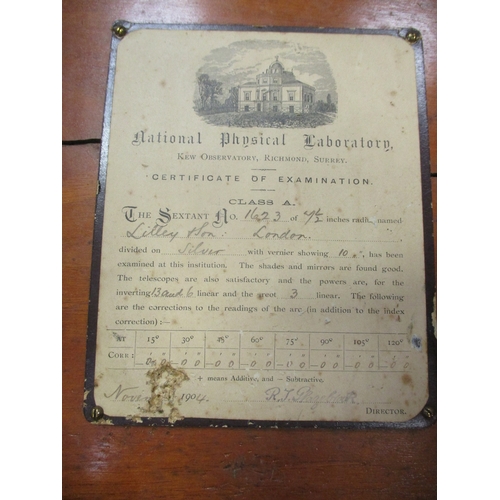 National Physical Laboratory,
KEW OBSERVATORY, RICHMOND, SURREY.
CERTIFICATE OF EXAMINATION.
CLASS A.
THE SEXTANT NO. 1623 of 7½ inches radius, named
Lilley & Son London
divided on Silver with vernier showing 10", has been
examined at this institution. The shades and mirrors are found good.
The telescopes are also satisfactory and the powers are, for the
inverting 13 and 6 linear and the direct 3 linear. The following
are the corrections to the readings of the arc (in addition to the index
correction):—
AT 15° 30° 45° 60° 75° 90° 105° 120°
CORR: —0 0 —0 0 —0 0 —0 0 —0 0 —0 0 —0 0 —0 0
+ means Additive, and — Subtractive.
1904.
DIRECTOR.